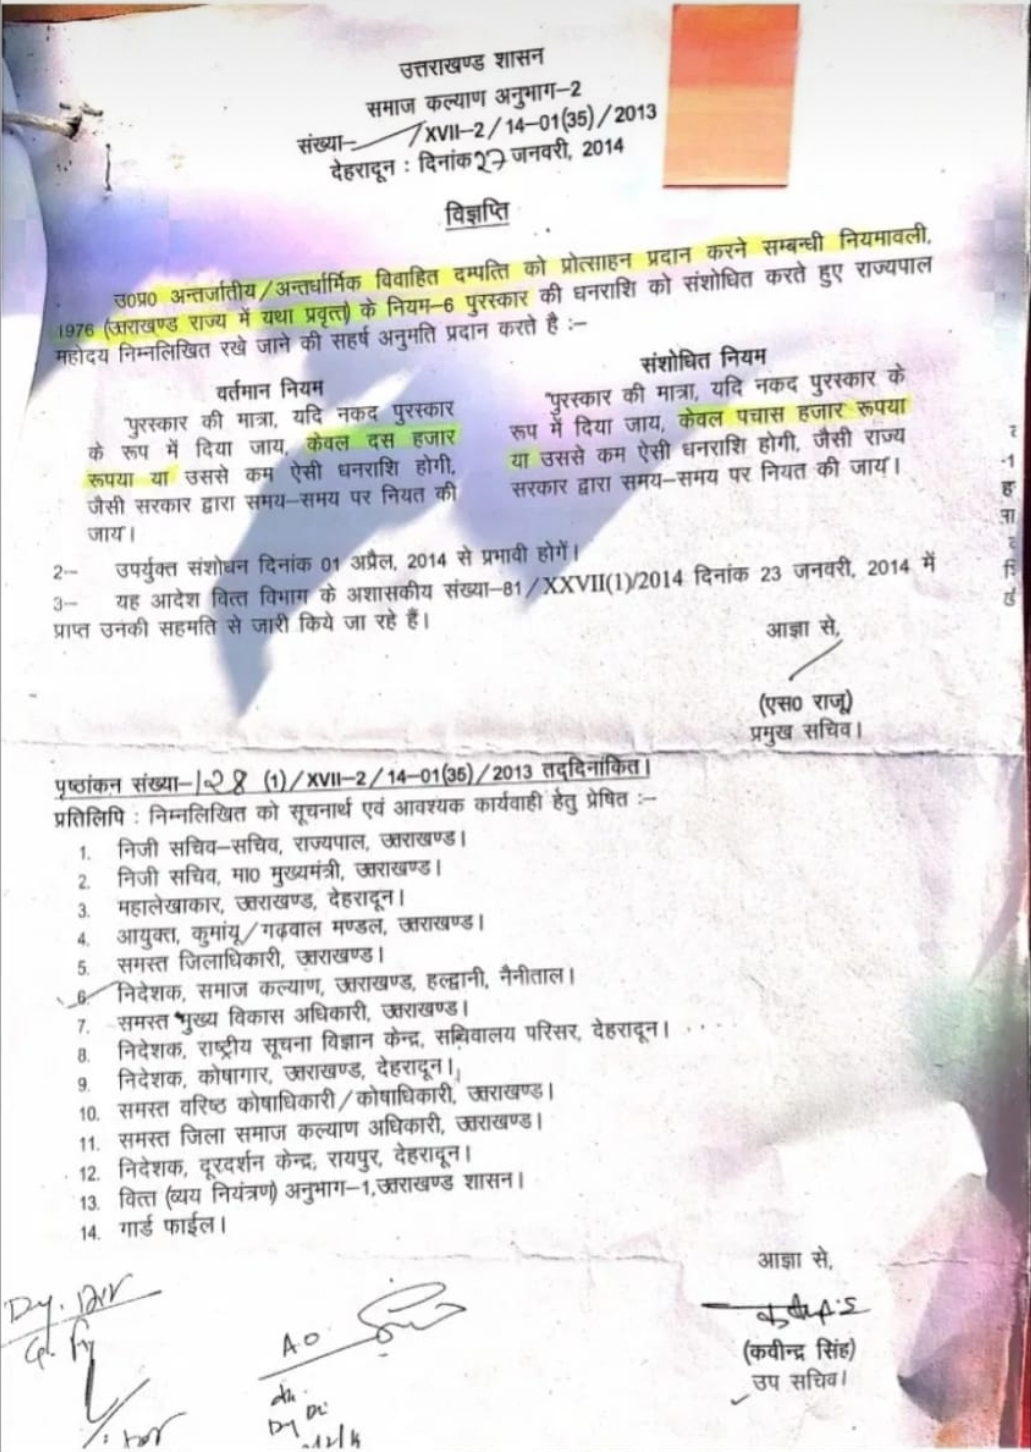 उत्तराखण्ड शासन
समाज कल्याण अनुभाग–2
संख्या– /XVII–2/14–01(35)/2013
देहरादून : दिनांक 27 जनवरी, 2014
विज्ञप्ति
उ0प्र0 अन्तर्जातीय/अन्तर्धार्मिक विवाहित दम्पत्ति को प्रोत्साहन प्रदान करने सम्बन्धी नियमावली,
1976 (उत्तराखण्ड राज्य में यथा प्रवृत्त) के नियम–6 पुरस्कार की धनराशि को संशोधित करते हुए राज्यपाल
महोदय निम्नलिखित रखे जाने की सहर्ष अनुमति प्रदान करते है :–
वर्तमान नियम
"पुरस्कार की मात्रा, यदि नकद पुरस्कार
के रूप में दिया जाय, केवल दस हजार
रूपया या उससे कम ऐसी धनराशि होगी,
जैसी सरकार द्वारा समय–समय पर नियत की
जाय"।
संशोधित नियम
"पुरस्कार की मात्रा, यदि नकद पुरस्कार के
रूप में दिया जाय, केवल पचास हजार रूपया
या उससे कम ऐसी धनराशि होगी, जैसी राज्य
सरकार द्वारा समय–समय पर नियत की जाय"।
2– उपर्युक्त संशोधन दिनांक 01 अप्रैल, 2014 से प्रभावी होगें।
3– यह आदेश वित्त विभाग के अशासकीय संख्या–81/XXVII(1)/2014 दिनांक 23 जनवरी, 2014 में
प्राप्त उनकी सहमति से जारी किये जा रहे हैं।
आज्ञा से,
(एस0 राजू)
प्रमुख सचिव।
पृष्ठांकन संख्या–128 (1)/XVII–2/14–01(35)/2013 तद्दिनांकित।
प्रतिलिपि : निम्नलिखित को सूचनार्थ एवं आवश्यक कार्यवाही हेतु प्रेषित :–
1. निजी सचिव–सचिव, राज्यपाल, उत्तराखण्ड।
2. निजी सचिव, मा0 मुख्यमंत्री, उत्तराखण्ड।
3. महालेखाकार, उत्तराखण्ड, देहरादून।
4. आयुक्त, कुमांयू/गढ़वाल मण्डल, उत्तराखण्ड।
5. समस्त जिलाधिकारी, उत्तराखण्ड।
6. निदेशक, समाज कल्याण, उत्तराखण्ड, हल्द्वानी, नैनीताल।
7. समस्त मुख्य विकास अधिकारी, उत्तराखण्ड।
8. निदेशक, राष्ट्रीय सूचना विज्ञान केन्द्र, सचिवालय परिसर, देहरादून।
9. निदेशक, कोषागार, उत्तराखण्ड, देहरादून।
10. समस्त वरिष्ठ कोषाधिकारी/कोषाधिकारी, उत्तराखण्ड।
11. समस्त जिला समाज कल्याण अधिकारी, उत्तराखण्ड।
12. निदेशक, दूरदर्शन केन्द्र, रायपुर, देहरादून।
13. वित्त (व्यय नियंत्रण) अनुभाग–1,उत्तराखण्ड शासन।
14. गार्ड फाईल।
आज्ञा से,
(कवीन्द्र सिंह)
उप सचिव।
Dy. Dir
A.O.